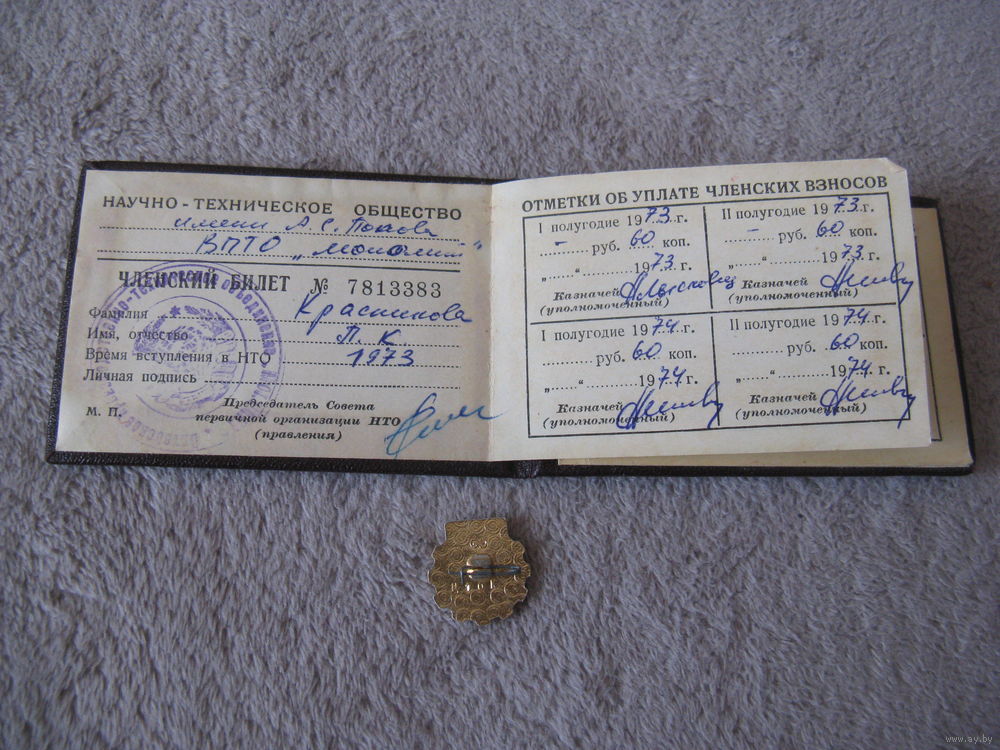 НАУЧНО-ТЕХНИЧЕСКОЕ ОБЩЕСТВО
имени А. С. Попова
ВПТО „Монолит"
ЧЛЕНСКИЙ БИЛЕТ № 7813383
Фамилия Красникова
Имя, отчество Л. К
Время вступления в НТО 1973
Личная подпись
М. П.
Председатель Совета
первичной организации НТО
(правления)
ОТМЕТКИ ОБ УПЛАТЕ ЧЛЕНСКИХ ВЗНОСОВ
I полугодие 1973.г.
– руб. 60 коп.
„......“ 1973 г.
Казначей
(уполномоченный)
II полугодие 1973.г.
– руб. 60 коп.
„......“ 1973 г.
Казначей
(уполномоченный)
I полугодие 1974.г.
руб. 60 коп.
„......“ 1974 г.
Казначей
(уполномоченный)
II полугодие 1974.г.
руб. 60 коп.
„......“ 1974 г.
Казначей
(уполномоченный)
www.ay.by